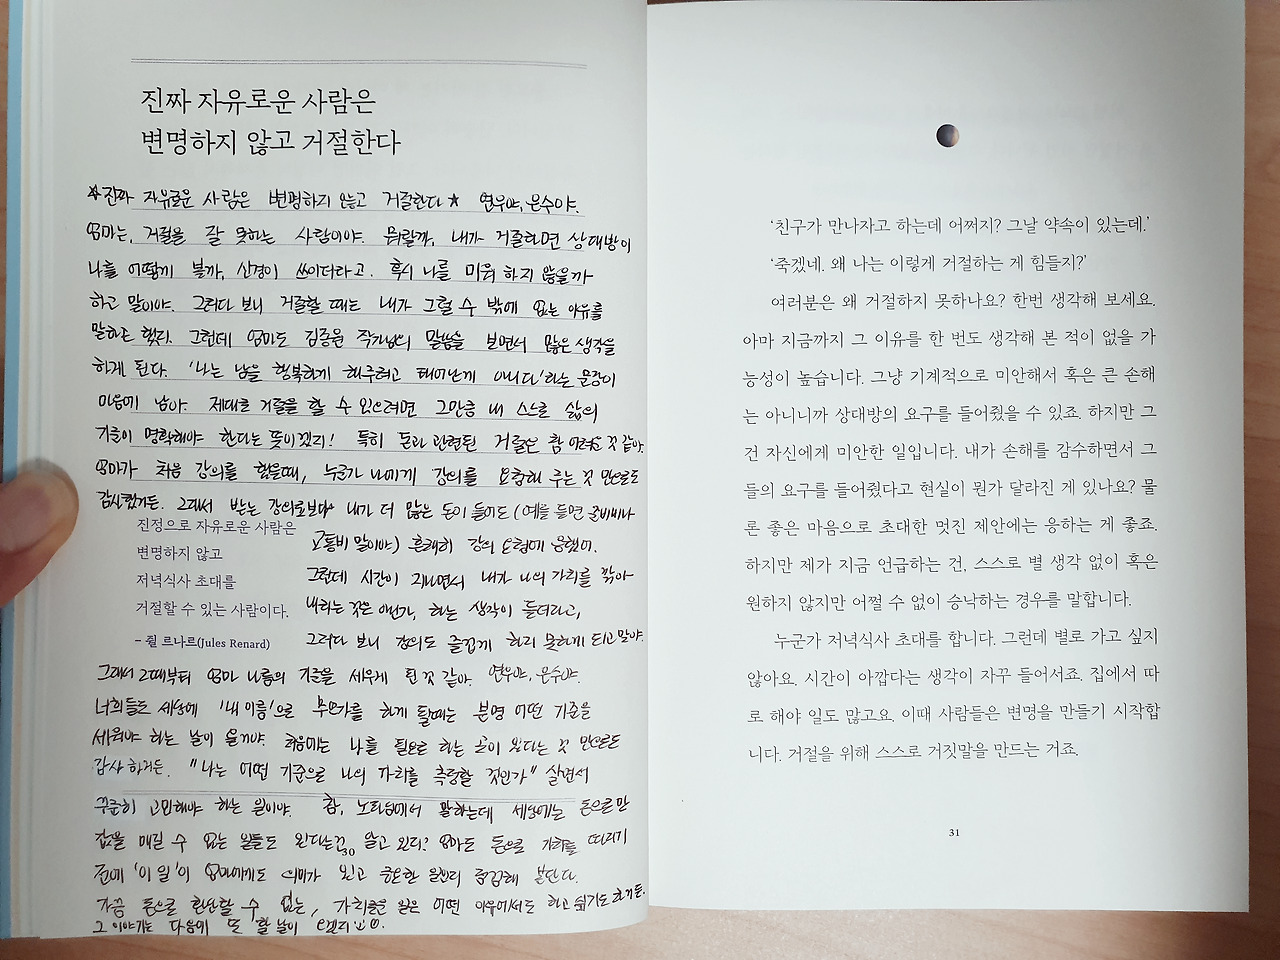 진짜 자유로운 사람은
변명하지 않고 거절한다
★진짜 자유로운 사람은 변명하지 않고 거절한다★ 연우야, 은수야.
엄마는, 거절을 잘 못하는 사람이야. 뭐랄까, 내가 거절하면 상대방이
나를 어떻게 볼까, 신경이 쓰이더라고. 혹시 나를 미워 하지 않을까
하고 말이야. 그러다 보니 거절할 때는 내가 그럴 수 밖에 없는 이유를
말하곤 했지. 그런데 엄마도 김종원 작가님의 말씀을 보면서 많은 생각을
하게 된다. '나는 남을 행복하게 해주려고 태어난게 아니다'하는 문장이
마음에 남아. 제대로 거절을 할 수 있으려면 그만큼 내 스스로 삶의
기준이 명확해야 한다는 뜻이겠지! 특히 돈과 관련된 거절은 참 어려운 것 같아.
엄마가 처음 강의를 했을때, 누군가 나에게 강의를 요청해 주는 것 만으로도
감사했거든. 그래서 받는 강의료보다 내가 더 많은 돈이 들어도 (예를 들면 준비비나
교통비 말이야) 흔쾌히 강의 요청에 응했어.
그런데 시간이 지나면서 내가 나의 가치를 깎아
내리는 것은 아닌가, 하는 생각이 들더라고,
그러다 보니 강의도 즐겁게 하지 못하게 되고 말야.
진정으로 자유로운 사람은
변명하지 않고
저녁식사 초대를
거절할 수 있는 사람이다.
– 쥘 르나르(Jules Renard)
그래서 그때부터 엄마 나름의 기준을 세우게 된 것 같아. 연우야, 은수야.
너희들도 세상에 '내 이름'으로 무언가를 하게 될때는 분명 어떤 기준을
세워야 하는 날이 올거야. 처음에는 나를 필요로 하는 곳이 있다는 것 만으로도
감사 하거든. "나는 어떤 기준으로 나의 가치를 측정할 것인가" 살면서
꾸준히 고민해야 하는 일이야. 참, 노파심에서 말하는데 세상에는 돈으로만
값을 매길 수 없는 일들도 있다는건 알고 있지? 엄마도 돈으로 가치를 따지기
전에 '이 일'이 엄마에게도 의미가 있고 중요한 일인지 점검해 본단다.
가끔 돈으로 환산할 수 없는, 가치로운 일은 어떤 이유에서도 하고 싶기도 하거든.
그 이야기는 다음에 또 할 날이 오겠지
30
'친구가 만나자고 하는데 어쩌지? 그날 약속이 있는데.'
'죽겠네. 왜 나는 이렇게 거절하는 게 힘들지?'
여러분은 왜 거절하지 못하나요? 한번 생각해 보세요.
아마 지금까지 그 이유를 한 번도 생각해 본 적이 없을 가
능성이 높습니다. 그냥 기계적으로 미안해서 혹은 큰 손해
는 아니니까 상대방의 요구를 들어줬을 수 있죠. 하지만 그
건 자신에게 미안한 일입니다. 내가 손해를 감수하면서 그
들의 요구를 들어줬다고 현실이 뭔가 달라진 게 있나요? 물
론 좋은 마음으로 초대한 멋진 제안에는 응하는 게 좋죠.
하지만 제가 지금 언급하는 건, 스스로 별 생각 없이 혹은
원하지 않지만 어쩔 수 없이 승낙하는 경우를 말합니다.
누군가 저녁식사 초대를 합니다. 그런데 별로 가고 싶지
않아요. 시간이 아깝다는 생각이 자꾸 들어서죠. 집에서 따
로 해야 일도 많고요. 이때 사람들은 변명을 만들기 시작합
니다. 거절을 위해 스스로 거짓말을 만드는 거죠.
31